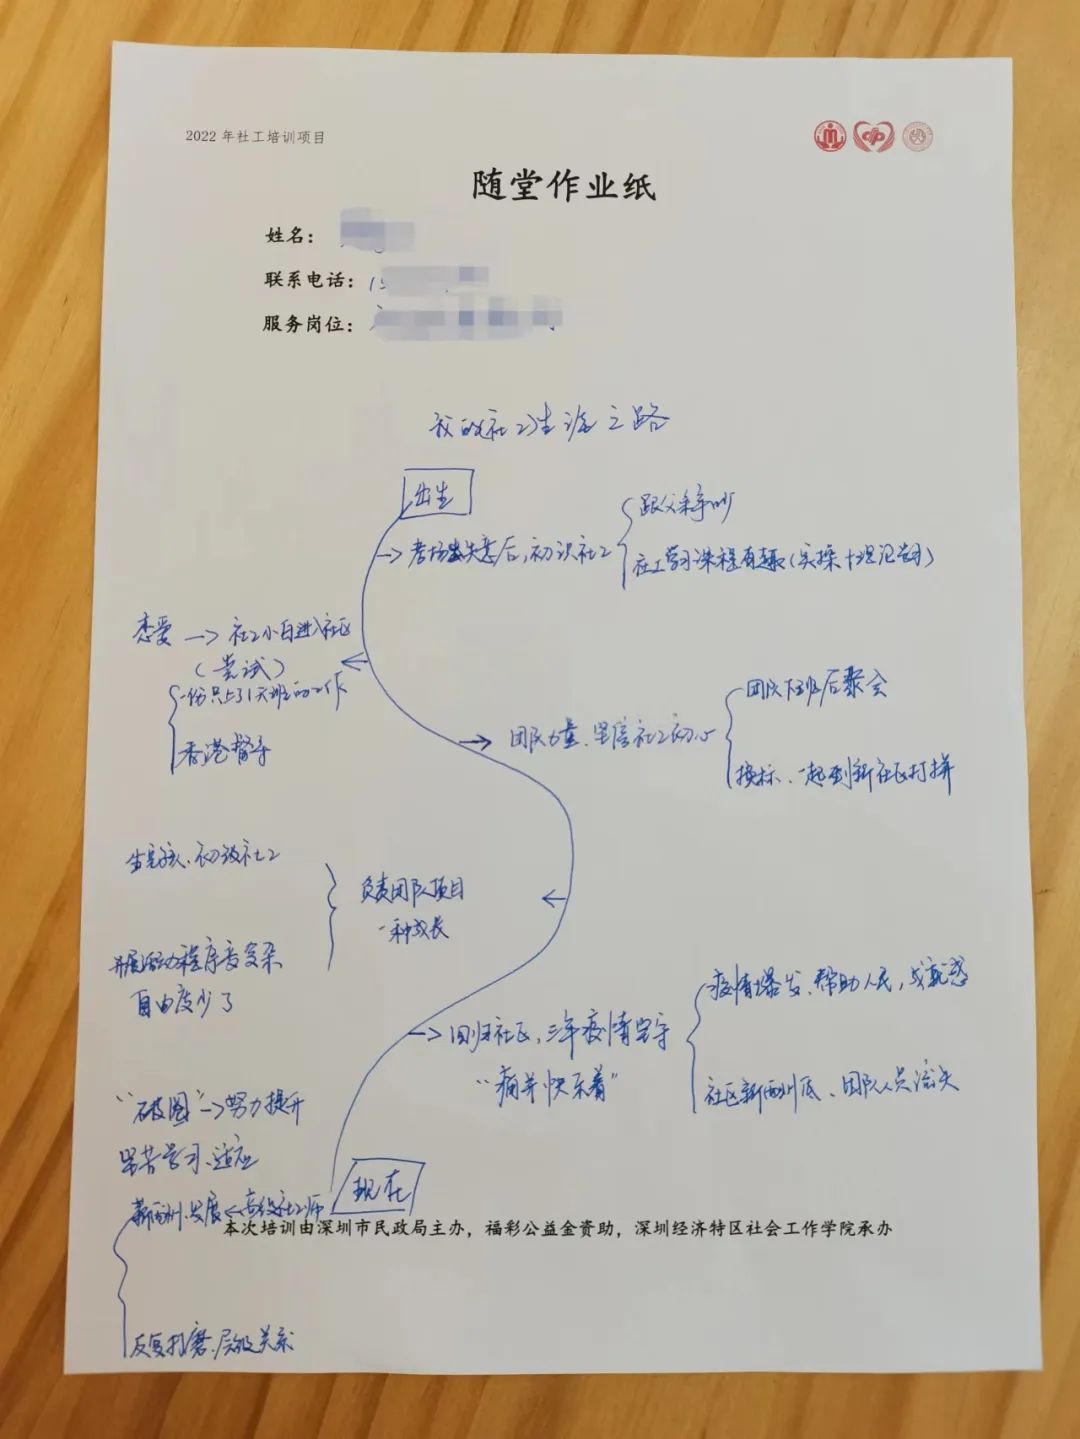 2022 年社工培训项目
随堂作业纸
姓名：
联系电话：
服务岗位：
我的社工生涯之路
出生
→ 考场失意后，初识社工
跟父亲争吵
社工学习课程有趣（实操＋理论学习）
恋爱 → 社工小白进入社区
（尝试）
一份只上了1天班的工作
香港督导
团队力量、坚信社工初心
团队下班后聚会
换标、一起到新社区打拼
生完孩、初级社工
开展活动程序变复杂
自由度少了
负责团队项目
一种成长
→ 回归社区，三年疫情坚守
“痛并快乐着”
疫情爆发、帮助人民，成就感
社区薪酬低、团队人员流失
“破圈”→努力提升
坚苦学习、适应
薪酬、发展 ← 高级社工师
现在
本次培训由深圳市民政局主办，福彩公益金资助，深圳经济特区社会工作学院承办
反复打磨、层级关系